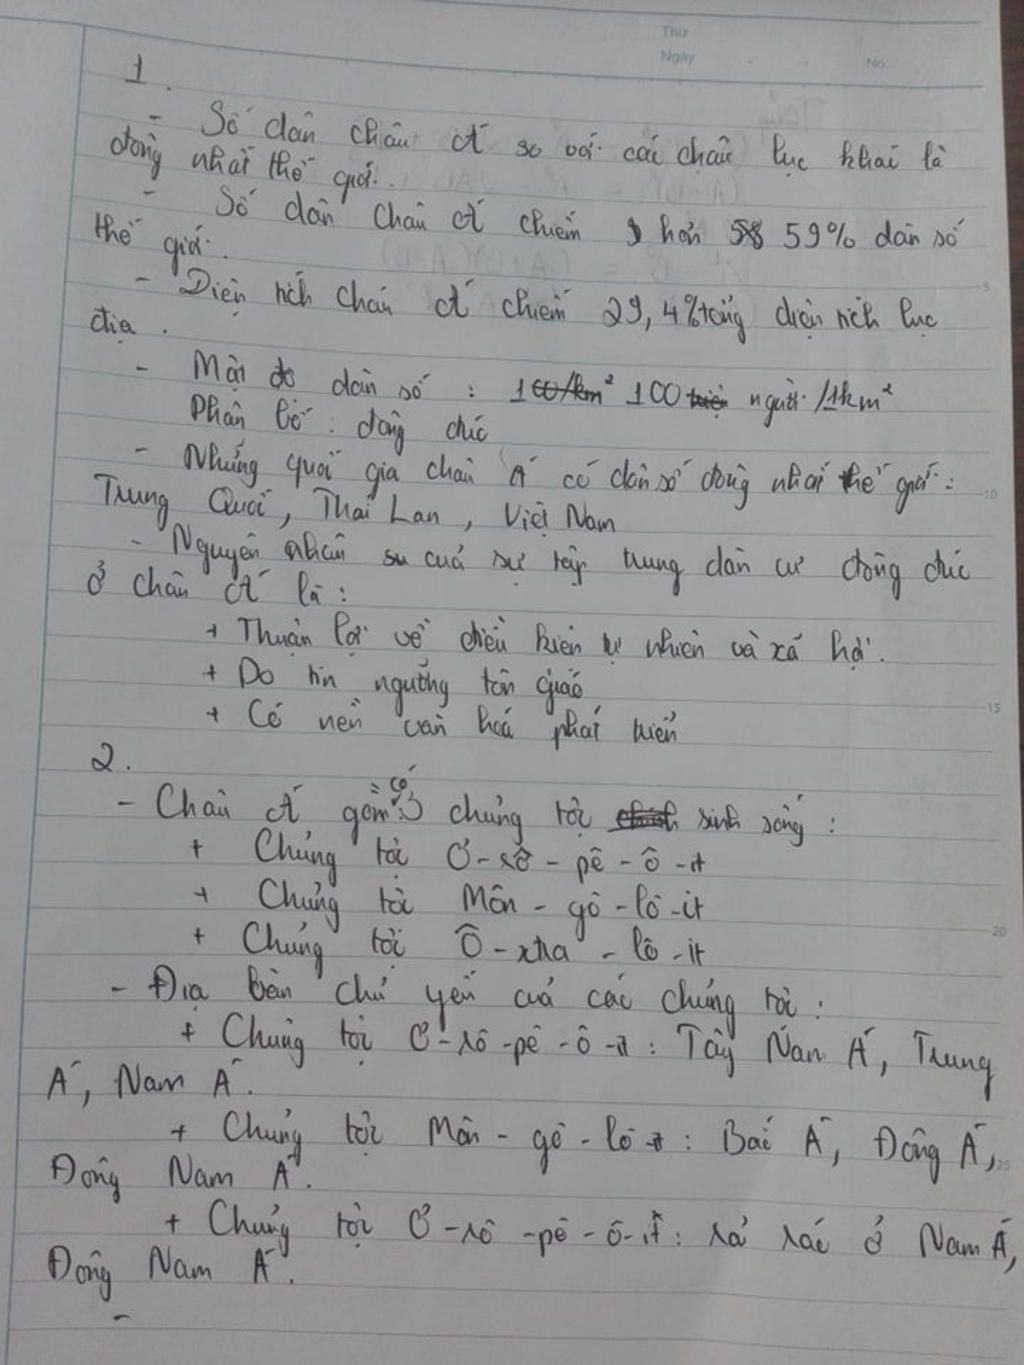 Thứ
Ngày No
1.
- Số dân châu Á so với các châu lục khác là
đông nhất thế giới.
- Số dân Châu Á chiếm hơn 59% dân số
thế giới.
- Diện tích Châu Á chiếm 29,4% tổng diện tích lục
địa.
- Mật độ dân số : 100 người /1km²
Phân bố : đông đúc
- Những quốc gia châu Á có dân số đông nhất thế giới :
Trung Quốc, Thái Lan, Việt Nam
- Nguyên nhân của sự tập trung dân cư đông đúc
ở Châu Á là :
+ Thuận lợi về điều kiện tự nhiên và xã hội.
+ Do tín ngưỡng tôn giáo
+ Có nền văn hoá phát triển
2.
- Châu Á gồm có 3 chủng tộc sinh sống :
+ Chủng tộc Ơ-rô-pê-ô-it
+ Chủng tộc Môn-gô-lô-it
+ Chủng tộc Ô-xtra-lô-it
- Địa bàn chủ yếu của các chủng tộc :
+ Chủng tộc Ơ-rô-pê-ô-it : Tây Nam Á, Trung
Á, Nam Á.
+ Chủng tộc Môn-gô-lô-it : Bắc Á, Đông Á,
Đông Nam Á.
+ Chủng tộc Ơ-rô-pê-ô-it : rải rác ở Nam Á,
Đông Nam Á.
-